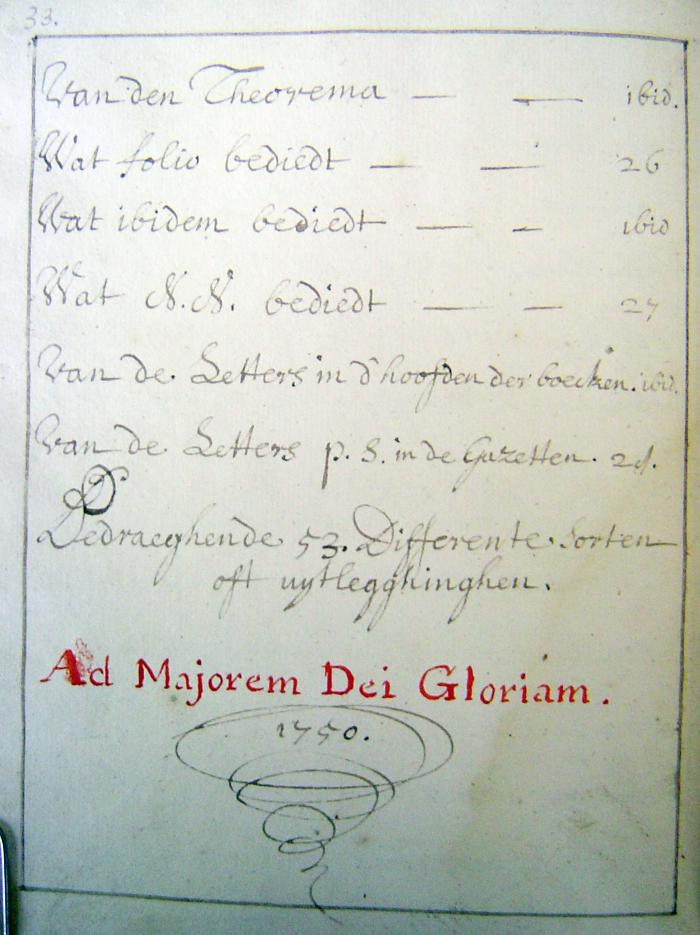 33.
Van den Theorema — — ibid.
Wat folio bediedt — — 26
Wat ibidem bediedt — – ibid
Wat N.N. bediedt — — 27
Van de Letters in d'hoofden der boecken. ibid.
Van de Letters p. s. in de Gazetten.
Bedraeghende 53. Differente sorten
oft uytlegghinghen.
Ad Majorem Dei Gloriam.
1750.